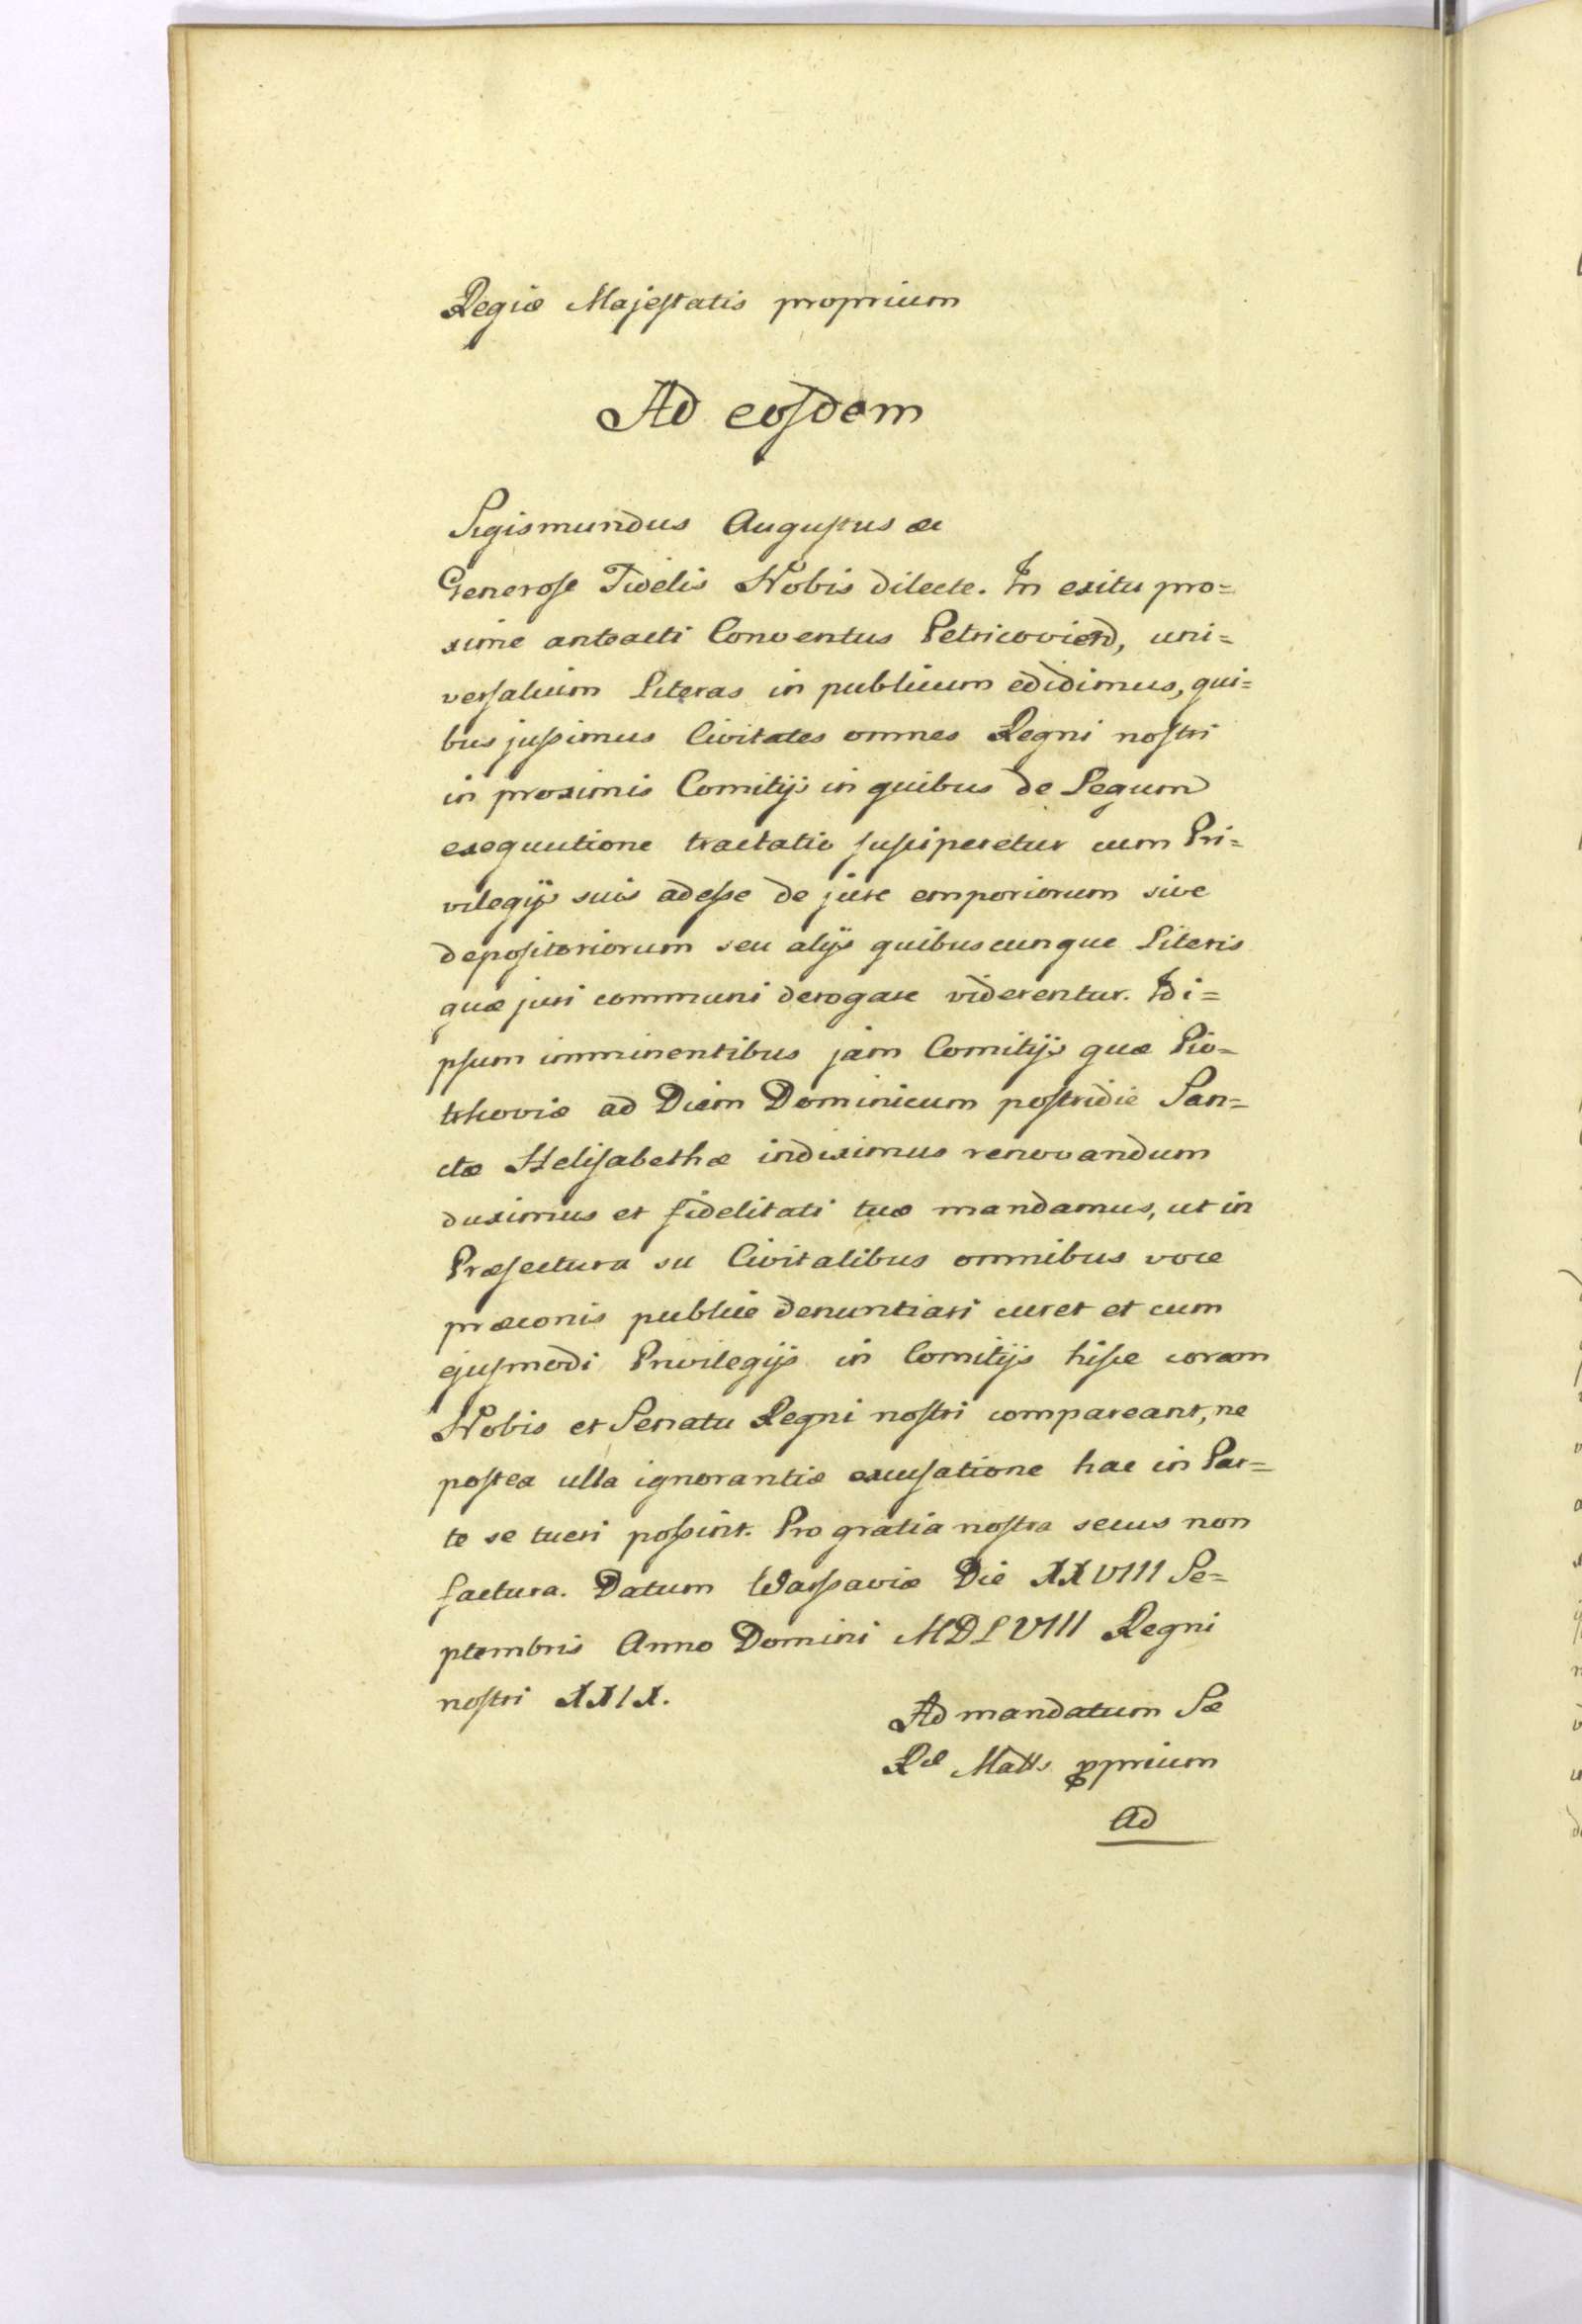 Regiæ Majestatis proprium
Ad eosdem
Sigismundus Augustus &c
Generose Fidelis Nobis dilecte. In exitu pro=
xime anteacti Conventus Petricovien, uni=
versalium Literas in publicum edidimus, qui=
bus jussimus Civitates omnes Regni nostri
in proximis Comitijs in quibus de Legum
exequutione tractatio susciperetur cum Pri=
vilegijs suis adesse de jure emporiorum sive
depositoriorum seu alijs quibuscunque Literis
quæ juri communi derogare viderentur. Idi=
psum imminentibus jam Comitijs quæ Pio=
trkoviæ ad Diem Dominicum postridie San=
ctæ Helisabethæ indiximus renovandum
duximus et fidelitati tuæ mandamus, ut in
Præfectura su Civitatibus omnibus voce
præconis publice denuntiari curet et cum
ejusmodi Privilegijs in Comitijs hisce coram
Nobis et Senatu Regni nostri compareant, ne
postea ulla ignorantiæ excusatione hac in Par=
te se tueri possint. Pro gratia nostra secus non
factura. Datum Warsaviæ Die XXVIII Se=
ptembris Anno Domini MDLVIII Regni
nostri XXIX.
Ad mandatum Sæ
Ræ Mattis pprium
Ad